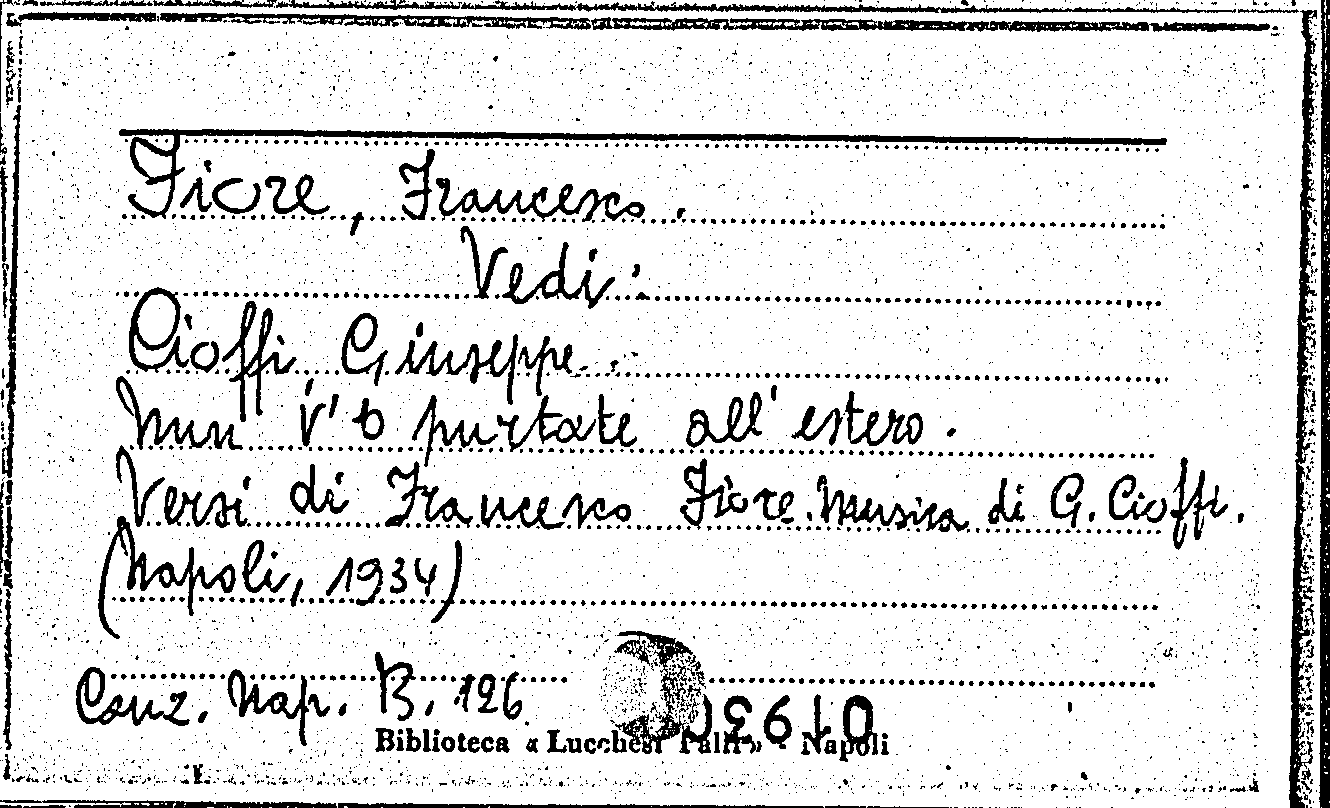 Fiore, Francesco.
Vedi:
Cioffi, Giuseppe.
Nun v' 'o purtate all' estero.
Versi di Francesco Fiore. Musica di G. Cioffi.
(Napoli, 1934)
Canz. Nap. B. 126
Biblioteca « Lucchesi Palli » - Napoli